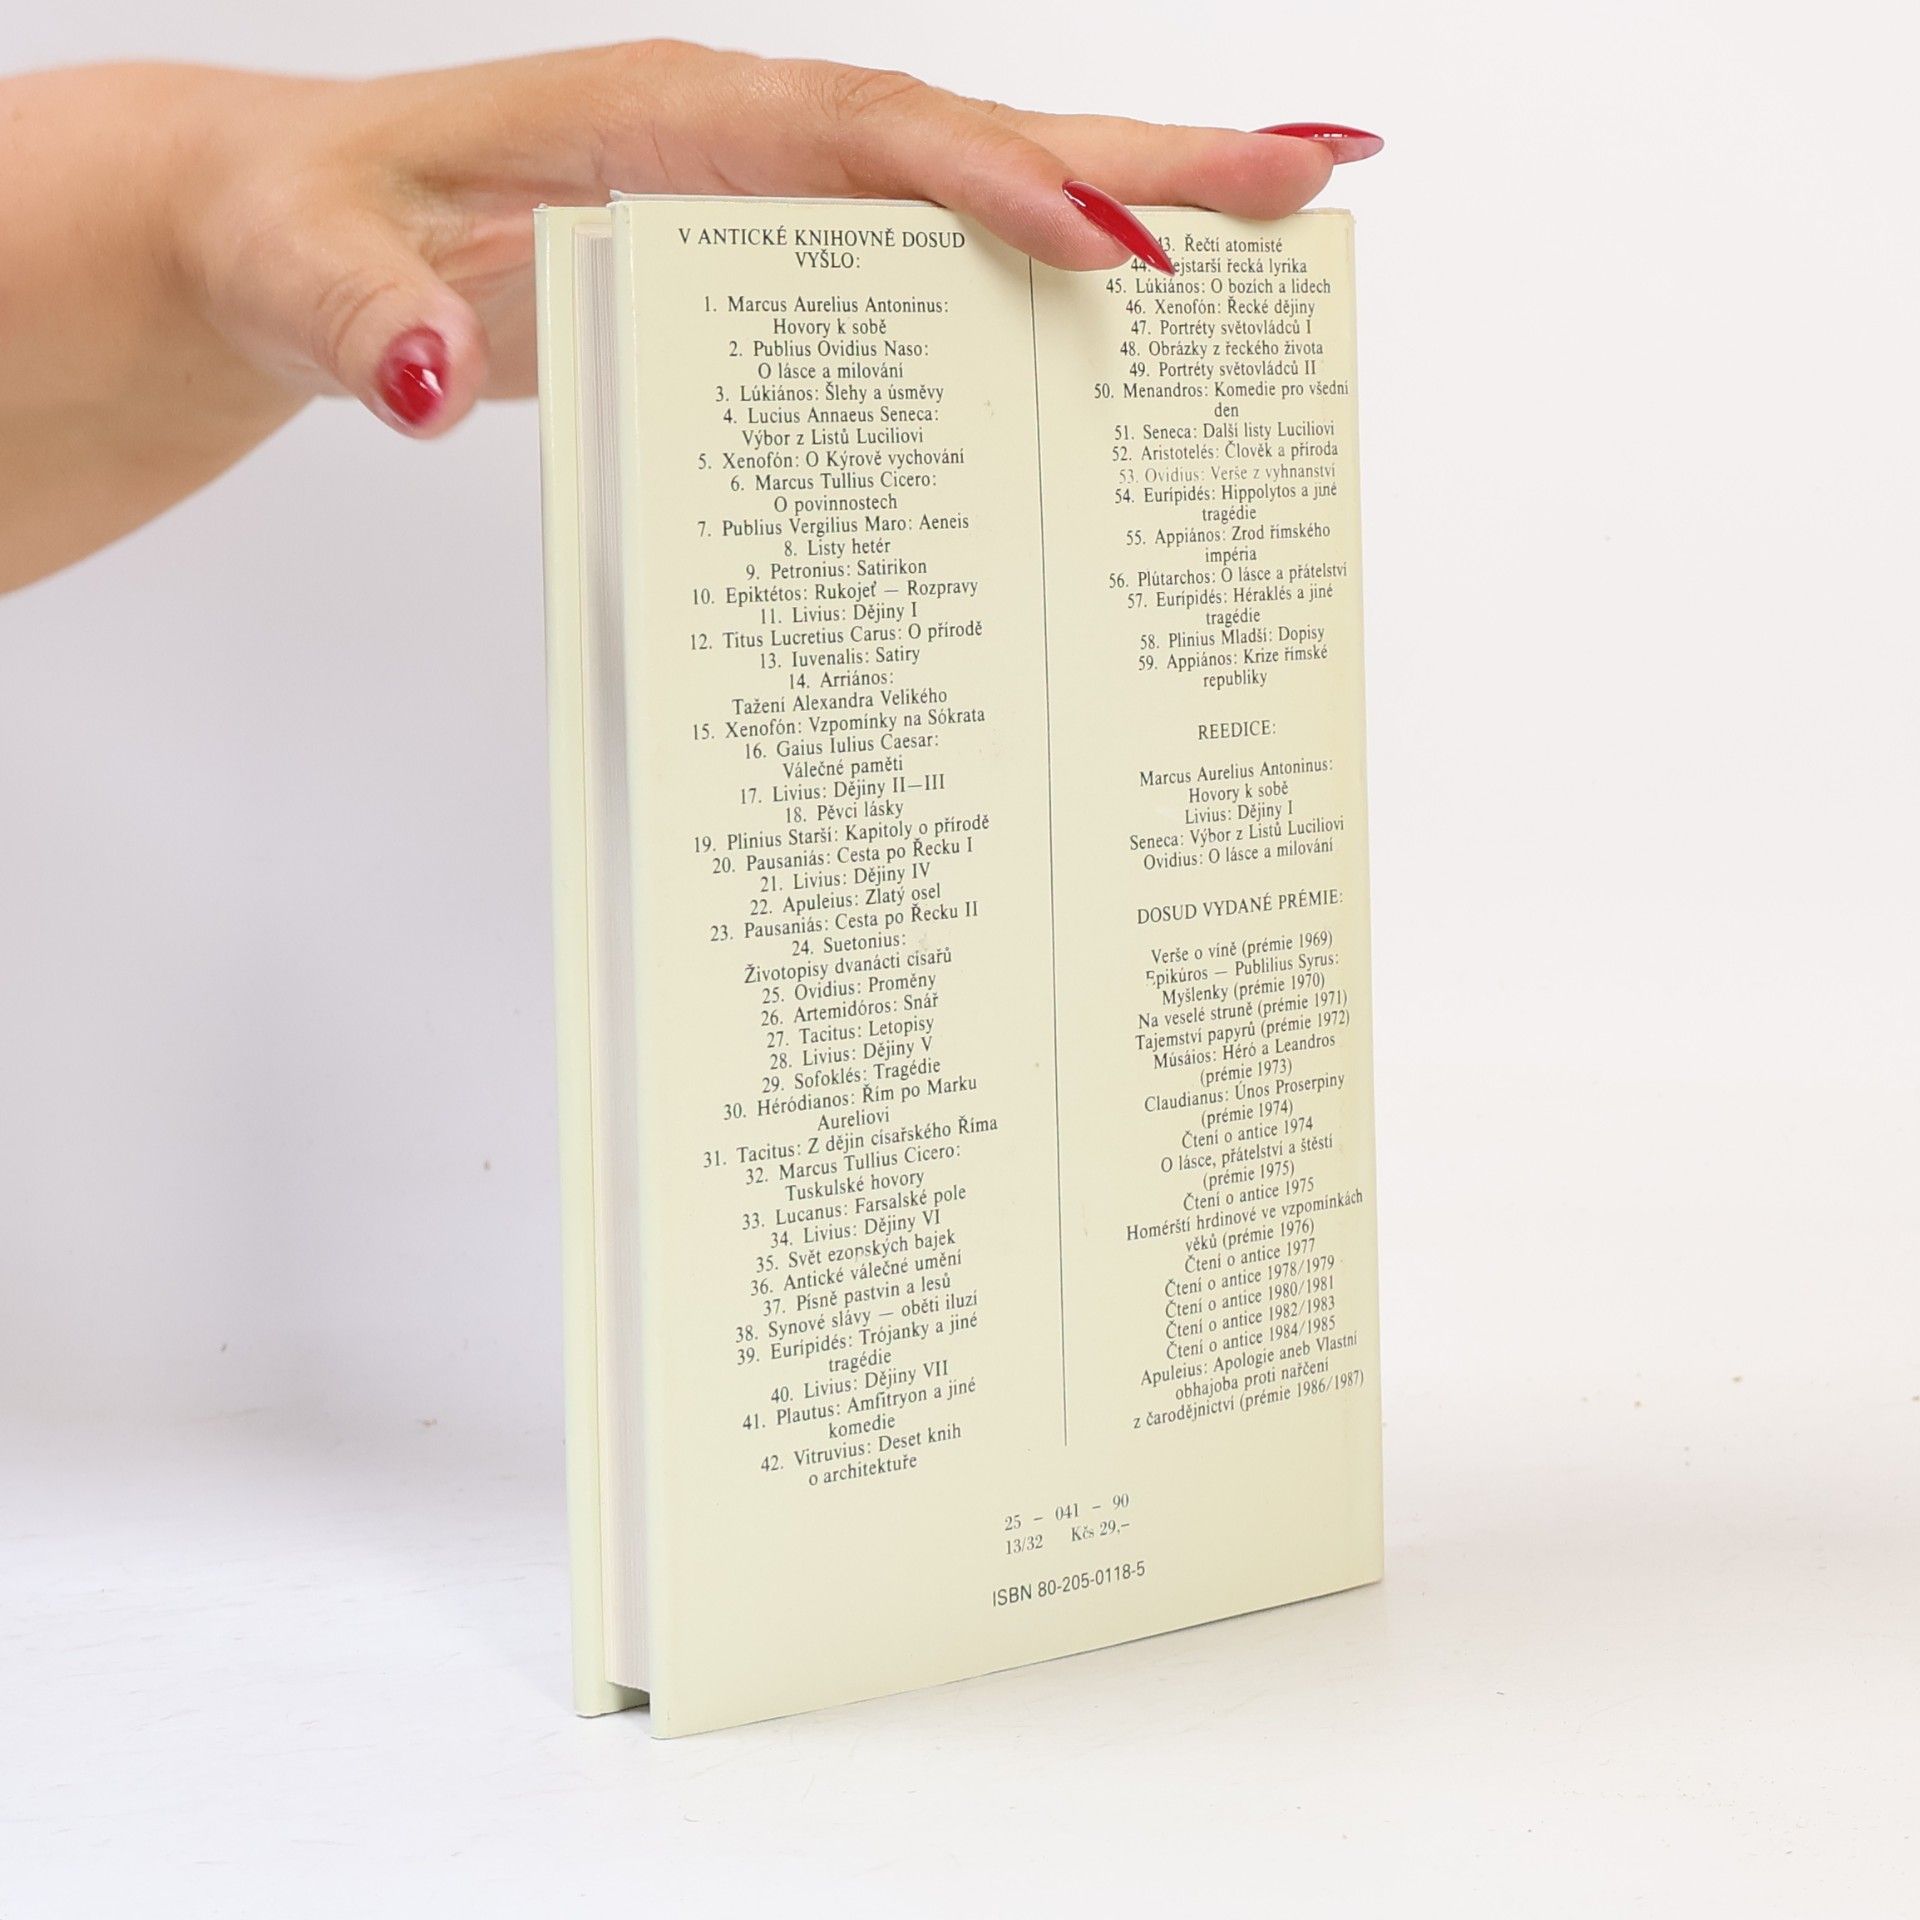 V ANTICKÉ KNIHOVNĚ DOSUD
VYŠLO:
1. Marcus Aurelius Antoninus:
Hovory k sobě
2. Publius Ovidius Naso:
O lásce a milování
3. Lúkiános: Šlehy a úsměvy
4. Lucius Annaeus Seneca:
Výbor z Listů Luciliovi
5. Xenofón: O Kýrově vychování
6. Marcus Tullius Cicero:
O povinnostech
7. Publius Vergilius Maro: Aeneis
8. Listy hetér
9. Petronius: Satirikon
10. Epiktétos: Rukojeť — Rozpravy
11. Livius: Dějiny I
12. Titus Lucretius Carus: O přírodě
13. Iuvenalis: Satiry
14. Arriános:
Tažení Alexandra Velikého
15. Xenofón: Vzpomínky na Sókrata
16. Gaius Iulius Caesar:
Válečné paměti
17. Livius: Dějiny II—III
18. Pěvci lásky
19. Plinius Starší: Kapitoly o přírodě
20. Pausaniás: Cesta po Řecku I
21. Livius: Dějiny IV
22. Apuleius: Zlatý osel
23. Pausaniás: Cesta po Řecku II
24. Suetonius:
Životopisy dvanácti císařů
25. Ovidius: Proměny
26. Artemidóros: Snář
27. Tacitus: Letopisy
28. Livius: Dějiny V
29. Sofoklés: Tragédie
30. Héródianos: Řím po Marku
Aureliovi
31. Tacitus: Z dějin císařského Říma
32. Marcus Tullius Cicero:
Tuskulské hovory
33. Lucanus: Farsalské pole
34. Livius: Dějiny VI
35. Svět ezopských bajek
36. Antické válečné umění
37. Písně pastvin a lesů
38. Synové slávy — oběti iluzí
39. Eurípidés: Trójanky a jiné
tragédie
40. Livius: Dějiny VII
41. Plautus: Amfitryon a jiné
komedie
42. Vitruvius: Deset knih
o architektuře
43. Řečtí atomisté
44. řecká lyrika
45. Lúkiános: O bozích a lidech
46. Xenofón: Řecké dějiny
47. Portréty světovládců I
48. Obrázky z řeckého života
49. Portréty světovládců II
50. Menandros: Komedie pro všední
den
51. Seneca: Další listy Luciliovi
52. Aristotelés: Člověk a příroda
53. Ovidius: Verše z vyhnanství
54. Eurípidés: Hippolytos a jiné
tragédie
55. Appiános: Zrod římského
impéria
56. Plútarchos: O lásce a přátelství
57. Eurípidés: Héraklés a jiné
tragédie
58. Plinius Mladší: Dopisy
59. Appiános: Krize římské
republiky
REEDICE:
Marcus Aurelius Antoninus:
Hovory k sobě
Livius: Dějiny I
Seneca: Výbor z Listů Luciliovi
Ovidius: O lásce a milování
DOSUD VYDANÉ PRÉMIE:
Verše o víně (prémie 1969)
Epikúros — Publilius Syrus:
Myšlenky (prémie 1970)
Na veselé struně (prémie 1971)
Tajemství papyrů (prémie 1972)
Músáios: Héró a Leandros
(prémie 1973)
Claudianus: Únos Proserpiny
(prémie 1974)
Čtení o antice 1974
O lásce, přátelství a štěstí
(prémie 1975)
Čtení o antice 1975
Homérští hrdinové ve vzpomínkách
věků (prémie 1976)
Čtení o antice 1977
Čtení o antice 1978/1979
Čtení o antice 1980/1981
Čtení o antice 1982/1983
Čtení o antice 1984/1985
Apuleius: Apologie aneb Vlastní
obhajoba proti nařčení
z čarodějnictví (prémie 1986/1987)
25 – 041 – 90
13/32 Kčs 29,–
ISBN 80-205-0118-5